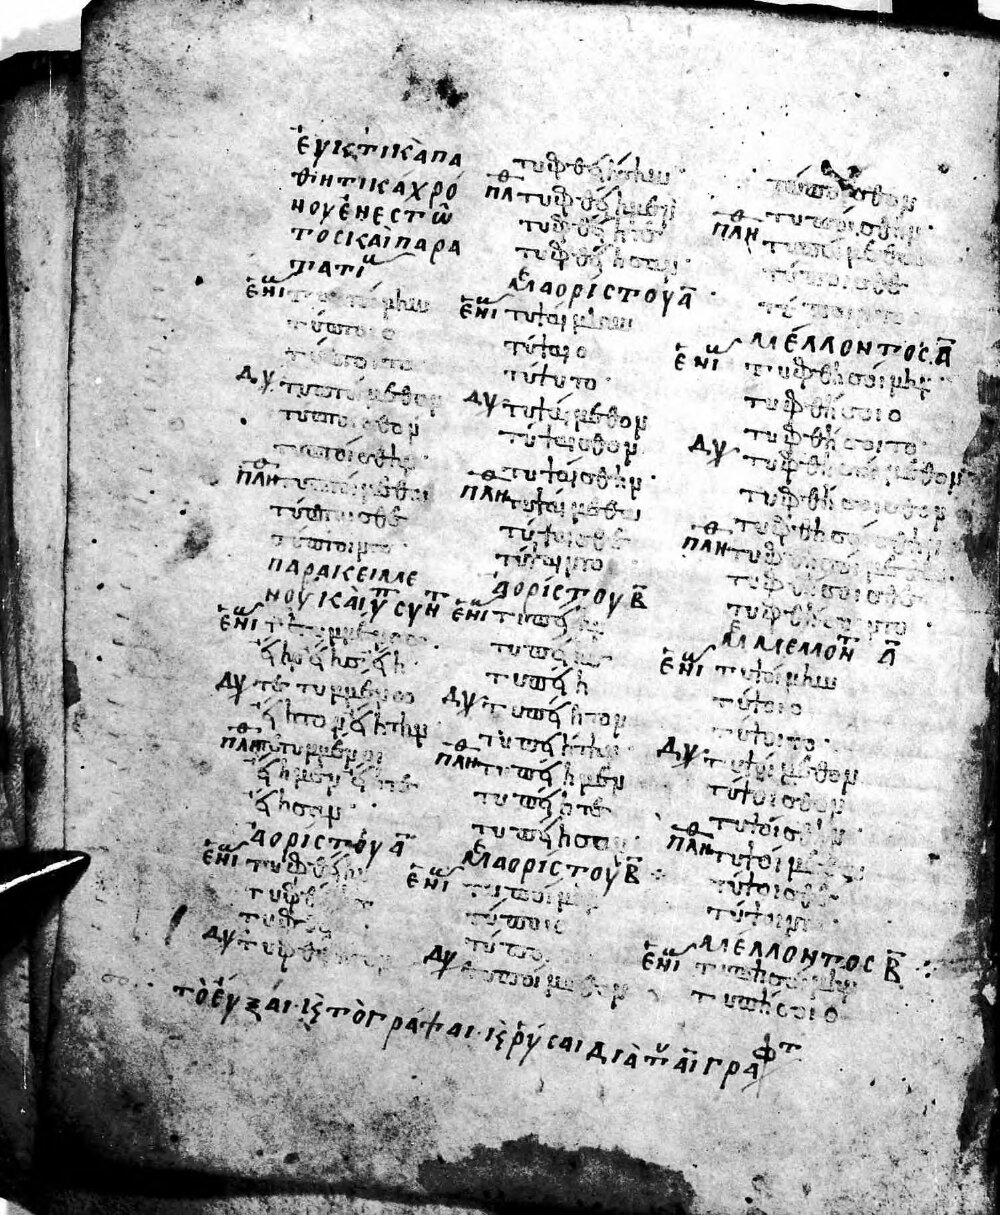 ἐυκτικὰ πα
θητικὰ χρό
νου ἐνεστῶ
τος καὶ παρα
τατι
ἑνι τυπτοίμην
τύπτοιο
τύπτοιτο
δυ τυπτοίμεθον
τύπτοισθον
τυπτοίσθην
πλη τυπτοίμεθα
τύπτοισθε
τύπτοιντο
παρακειμε
νου καὶ ὑπερσυντ
ἑνι τετυμμένος
εἴην εἴης εἴη
δυ τετυμμένω
εἴητον εἰήτην
πλη τετυμμένοι
εἴημεν εἴητε
εἴησαν
ἀορίστου α
ἑνι τυφθείην
δυ
τυφθείητον
τυφθειήτην
πλ τυφθείημεν
τυφθείητε
τυφθείησαν
μ ἀορίστου α
ἑνι τυψαίμην
τύψαιο
τύψαιτο
δυ τυψαίμεθον
τύψαισθον
τυψαίσθην
πλη τυψαίμεθα
τύψαισθε
τύψαιντο
ἀορίστου β
ἑνι τυπείην
τυπείης
τυπείη
δυ τυπείητον
τυπειήτην
πλη τυπείημεν
τυπείητε
τυπείησαν
μ ἀορίστου β
ἑνι τυποίμην
τύποιο
τύποιτο
δυ τυποίμεθον
τύποισθον
τυποίσθην
πλη τυποίμεθα
τύποισθε
τύποιντο
μέλλοντος α
ἑνι τυφθησοίμην
τυφθήσοιο
τυφθήσοιτο
δυ τυφθησοίμεθον
τυφθήσοισθον
τυφθησοίσθην
πλη τυφθησοίμεθα
τυφθήσοισθε
τυφθήσοιντο
μ μέλλοντ α
ἑνι τυψοίμην
τύψοιο
τύψοιτο
δυ τυψοίμεθον
τύψοισθον
τυψοίσθην
πλη τυψοίμεθα
τύψοισθε
τύψοιντο
μέλλοντος β
ἑνι τυπησοίμην
τυπήσοιο
τὸ ἐύξαι· κς τὸ γράψαι· κς ρύσαι διὰ